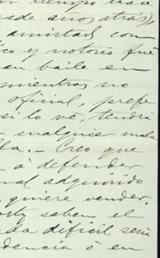 tiempo
desde años atrás),
amistad con
co y notorio fué
un baile en
mientras no
oficial, prefe
si lo vé, tendrá
cualquier mala
lla.— Creo que
á defender
adquirido
quiere vender.
saben el
da dificil seria
dencia ó en